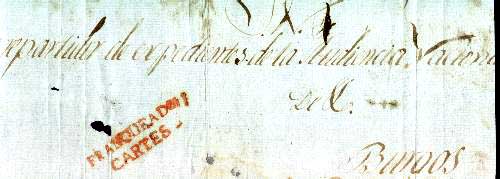 repartidor de expedientes de la Audiencia Naciona
de
FRANQUEADO
CARTES
Burgos